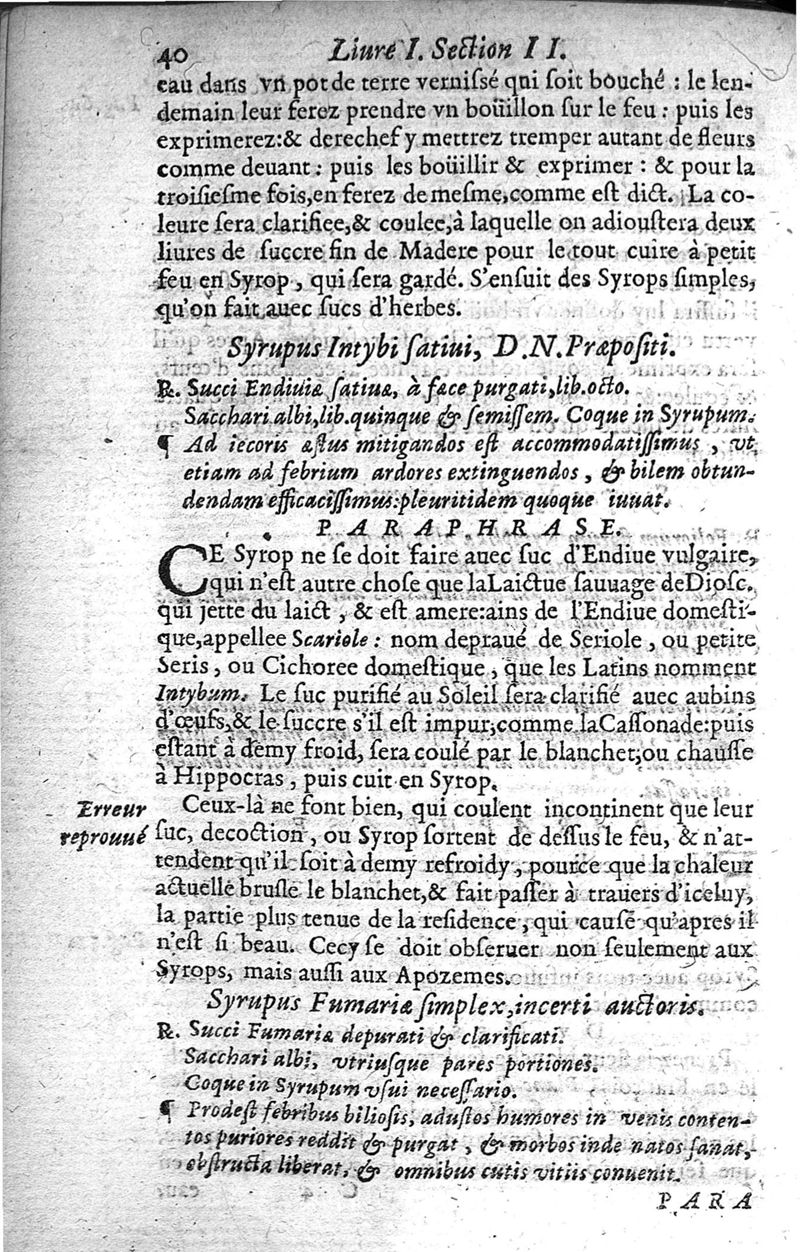 40 Liure I. Section II.
eau dans vn pot de terre vernissé qui soit bouché : le len-
demain leur ferez prendre vn boüillon sur le feu : puis les
exprimerez:& derechef y mettrez tremper autant de fleurs
comme deuant : puis les boüillir & exprimer : & pour la
troisiesme fois,en ferez de mesme,comme est dict. La co-
leure sera clarifiee,& coulee,à laquelle on adioustera deux
liures de succre fin de Madere pour le tout cuire à petit
feu en Syrop, qui sera gardé. S'ensuit des Syrops simples,
qu'on fait auec sucs d'herbes.
Syrupus Intybi satiui, D.N.Præpositi.
℞. Succi Endiuiæ satiuæ, à fæce purgati,lib.octo.
Sacchari albi,lib.quinque & semissem. Coque in Syrupum.
¶ Ad iecoris æstus mitigandos est accommodatissimus, vt
etiam ad febrium ardores extinguendos, & bilem obtun-
dendam efficacissimus:pleuritidem quoque iuuat.
PARAPHRASE.
CE Syrop ne se doit faire auec suc d'Endiue vulgaire,
qui n'est autre chose que la Laictue sauuage de Diosc.
qui jette du laict, & est amere:ains de l'Endiue domesti-
que,appellee Scariole : nom depraué de Seriole, ou petite
Seris, ou Cichoree domestique, que les Latins nomment
Intybum. Le suc purifié au Soleil sera clarifié auec aubins
d'œufs,& le succre s'il est impur,comme la Cassonade:puis
estant à demy froid, sera coulé par le blanchet,ou chausse
à Hippocras, puis cuit en Syrop.
Erreur
reprouué
Ceux-là ne font bien, qui coulent incontinent que leur
suc, decoction, ou Syrop sortent de dessus le feu, & n'at-
tendent qu'il soit à demy refroidy, pource que la chaleur
actuelle brusle le blanchet,& fait passer à trauers d'iceluy,
la partie plus tenue de la residence, qui cause qu'apres il
n'est si beau. Cecy se doit obseruer non seulement aux
Syrops, mais aussi aux Apozemes.
Syrupus Fumariæ simplex,incerti auctoris.
℞. Succi Fumariæ depurati & clarificati.
Sacchari albi, vtriusque pares portiones.
Coque in Syrupum vsui necessario.
¶ Prodest febribus biliosis, adustos humores in venis conten-
tos puriores reddit & purgat, & morbos inde natos sanat,
obstructa liberat, & omnibus cutis vitiis conuenit.
PARA